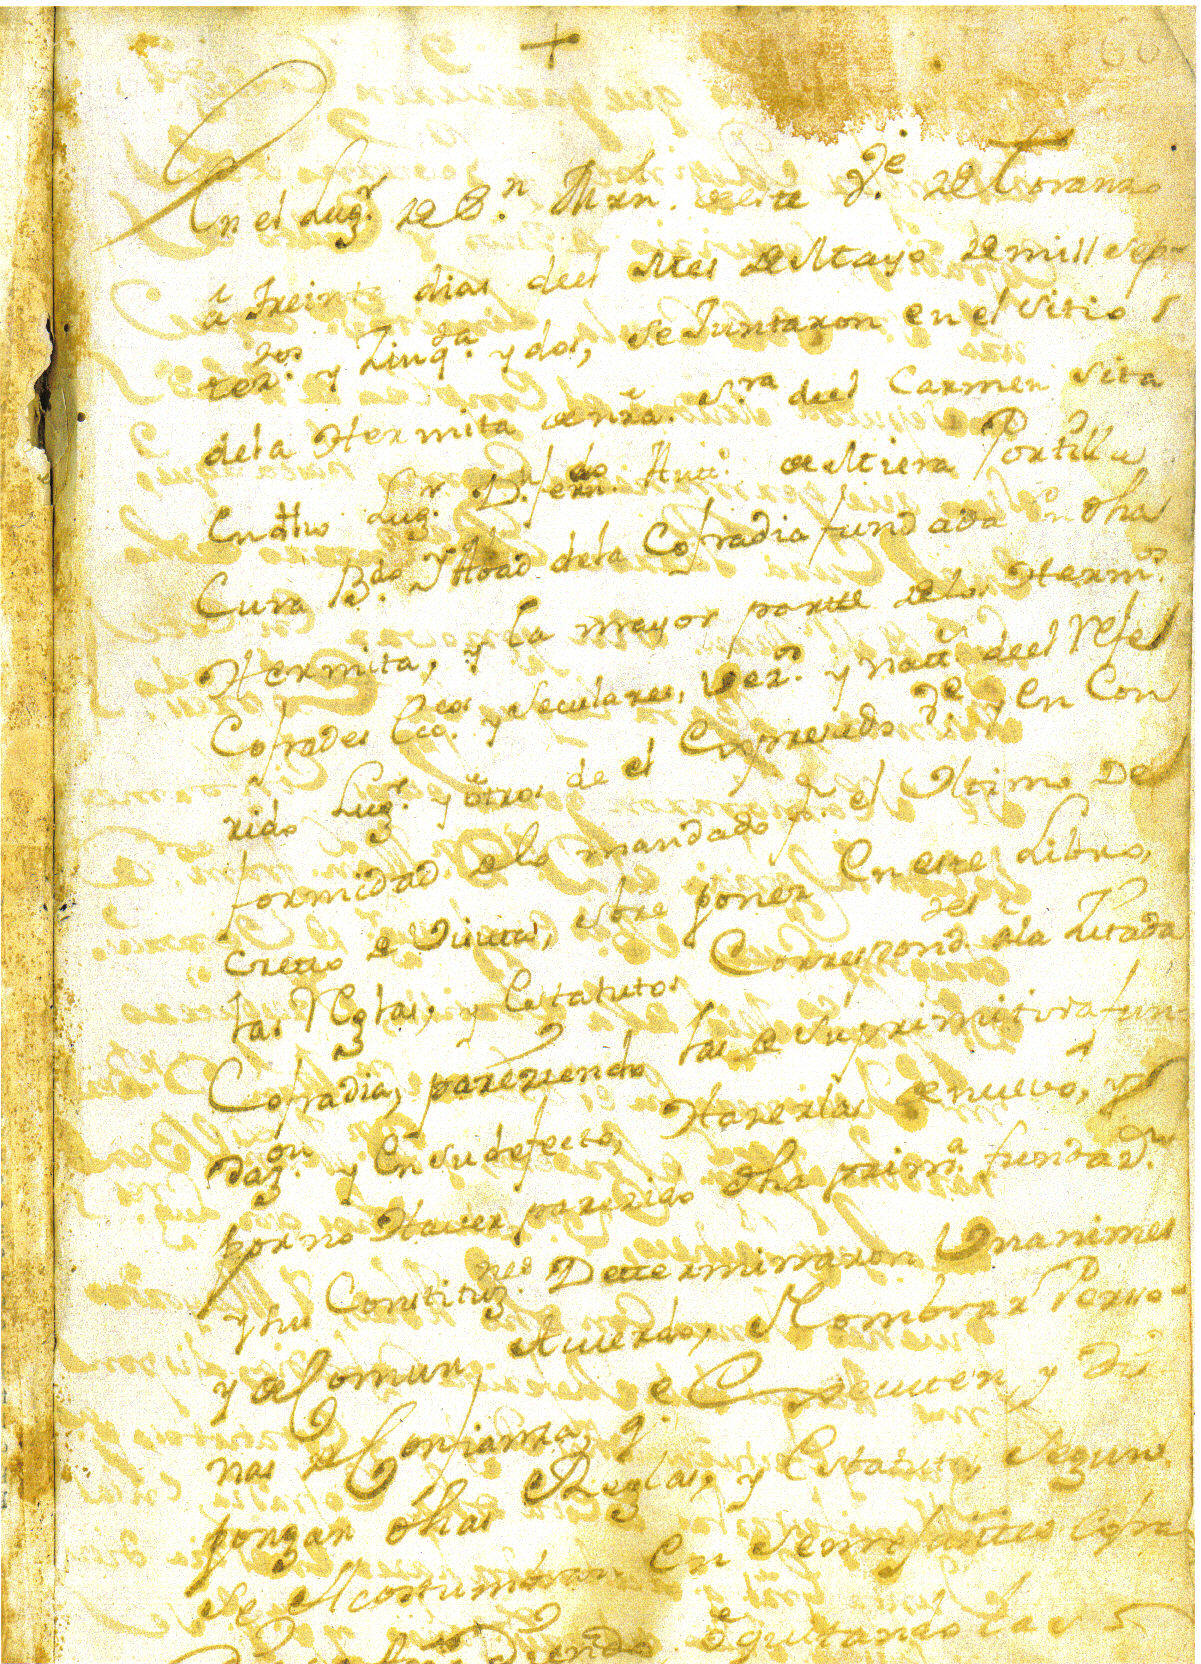 +
En el Lugr. de Sn. Mrn. de este Ve. de Toranzo
â treinta dias deel Mes de Mayo de mill sep-
tezos. y Zinqta. y dos, se Juntaron en el sitio
dela Hermita de nra. Sra. deel Carmen sita
En dho Lugr. Dn. Ferndo. de Miera Portilla
Cura Bdo. y Abad dela Cofradia fundada En dha
Hermita, y la mayor parte de los Hermos.
Cofrades Eccos. y Seculares, vezos. y natts. deel Refe
rido Lugr. y otros de el Expresado Ve. y En Con
formidad de lo mandado pr. el Ultimo De
cretto de Visita, sobre poner En este Libro,
las Reglas, y Estatutos Correspondtes. a la Zitada
Cofradia, pareziendo las de su primitiva fun
dazon. y En su defecto, Hazerlas de nuevo, y
por no Haver parezido dha prima. fundazn.
y sus Constituznes. Dettermin­aron Unanimes
y de Comun Acuerdo, Nombrar Perso-
nas de Confianza, q. e Executen y Dis
pongan dhas Reglas, y Estatutos, segun
se Acostumbran En Semejantes Cofra
diendo ô quitando las